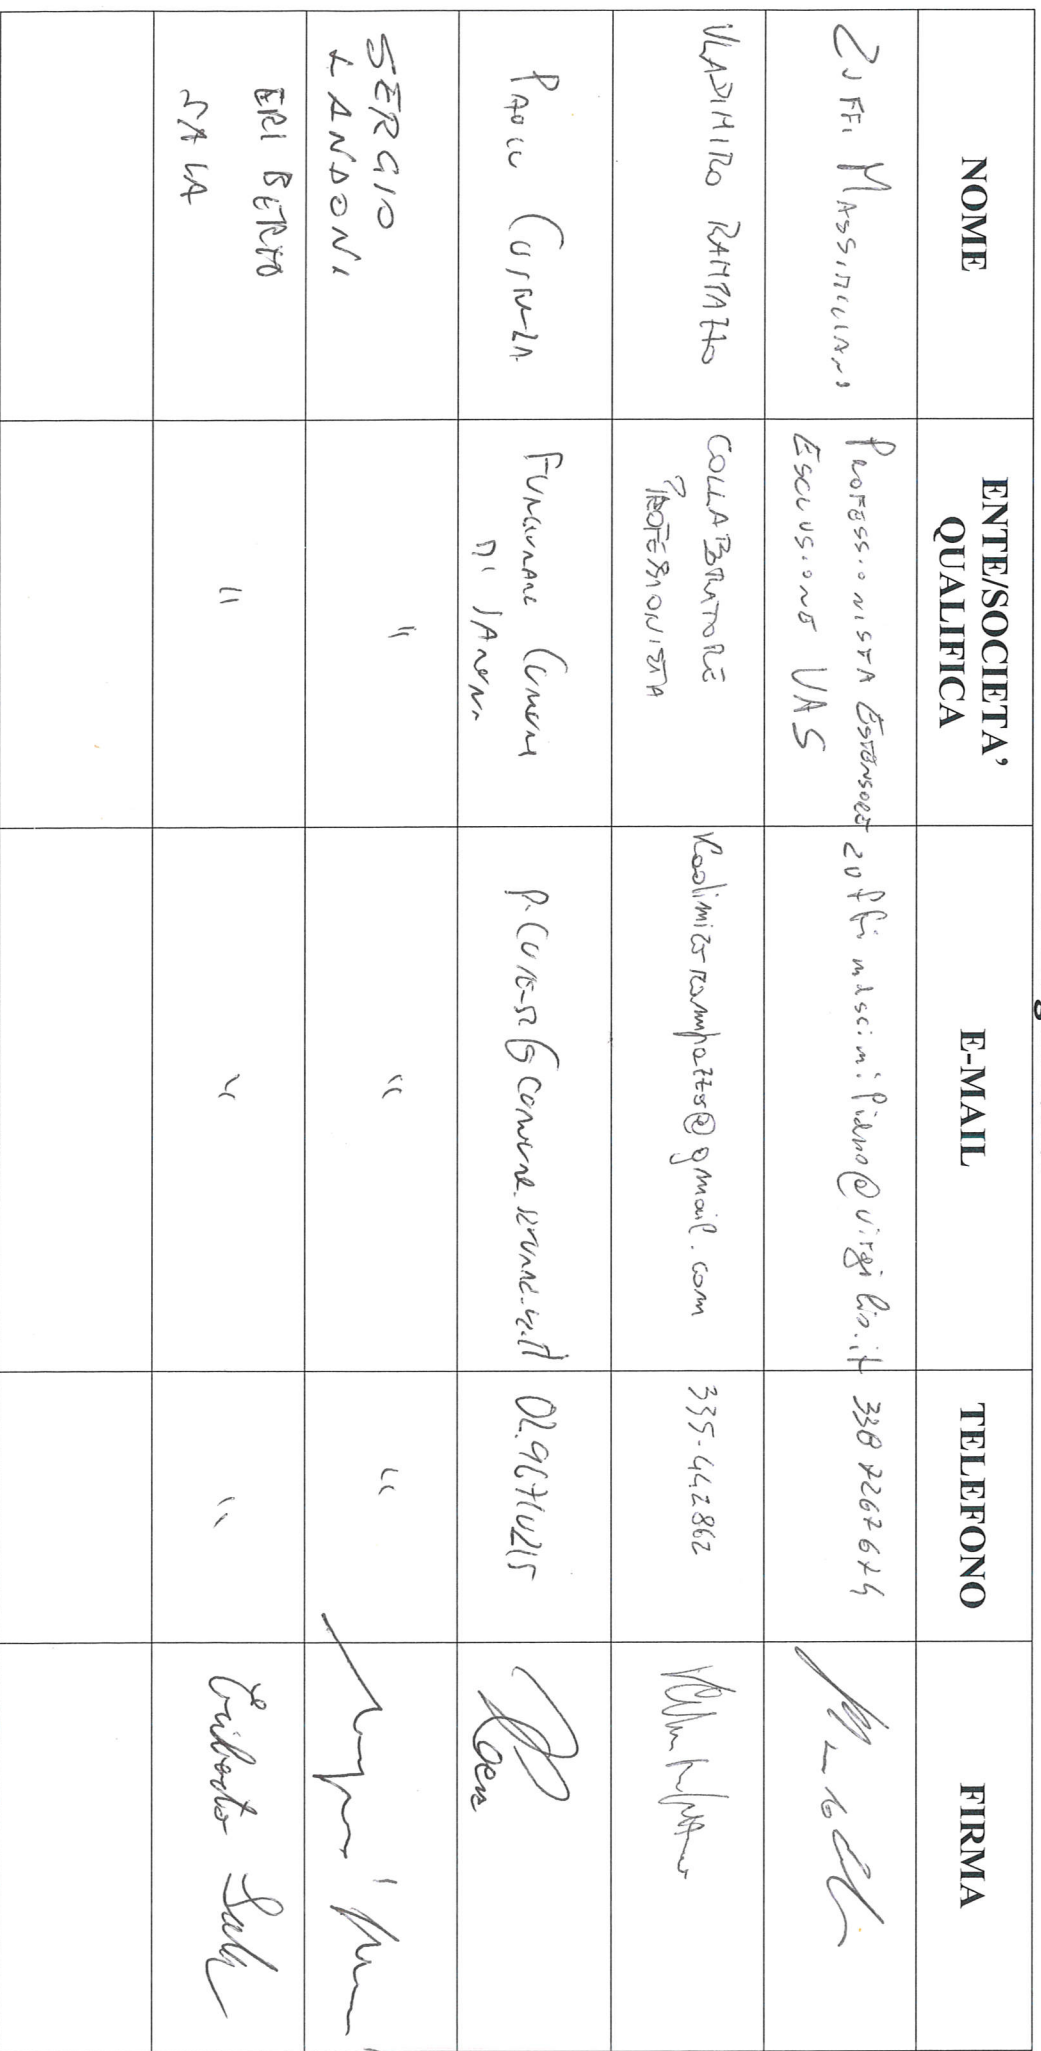 NOME
ENTE/SOCIETA'
QUALIFICA
E-MAIL
TELEFONO
FIRMA
ZUFFI MASSIMILIANO
PROFESSIONISTA ESTENSORE
ESCLUSIONE VAS
zuffimassimiliano@virgilio.it
338 7267674
VLADIMIRO RAMPAZZO
COLLABORATORE
PROFESSIONISTA
vladimirorampazzo@gmail.com
335-442862
PAOLO
FUNZIONARIO COMUNE
02.96710215
SERGIO
LANDONI
"
"
"
ERIBERTO
SALA
"
"
"
Eriberto Sala